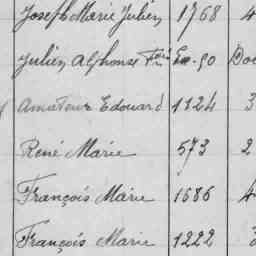 Joseph Marie Julien 1768 4
Julien Alphonse Fçois Ex-90
Amateur Edouard 1124 3
René Marie 573 2
François Marie 1686 4
François Marie 1222 3